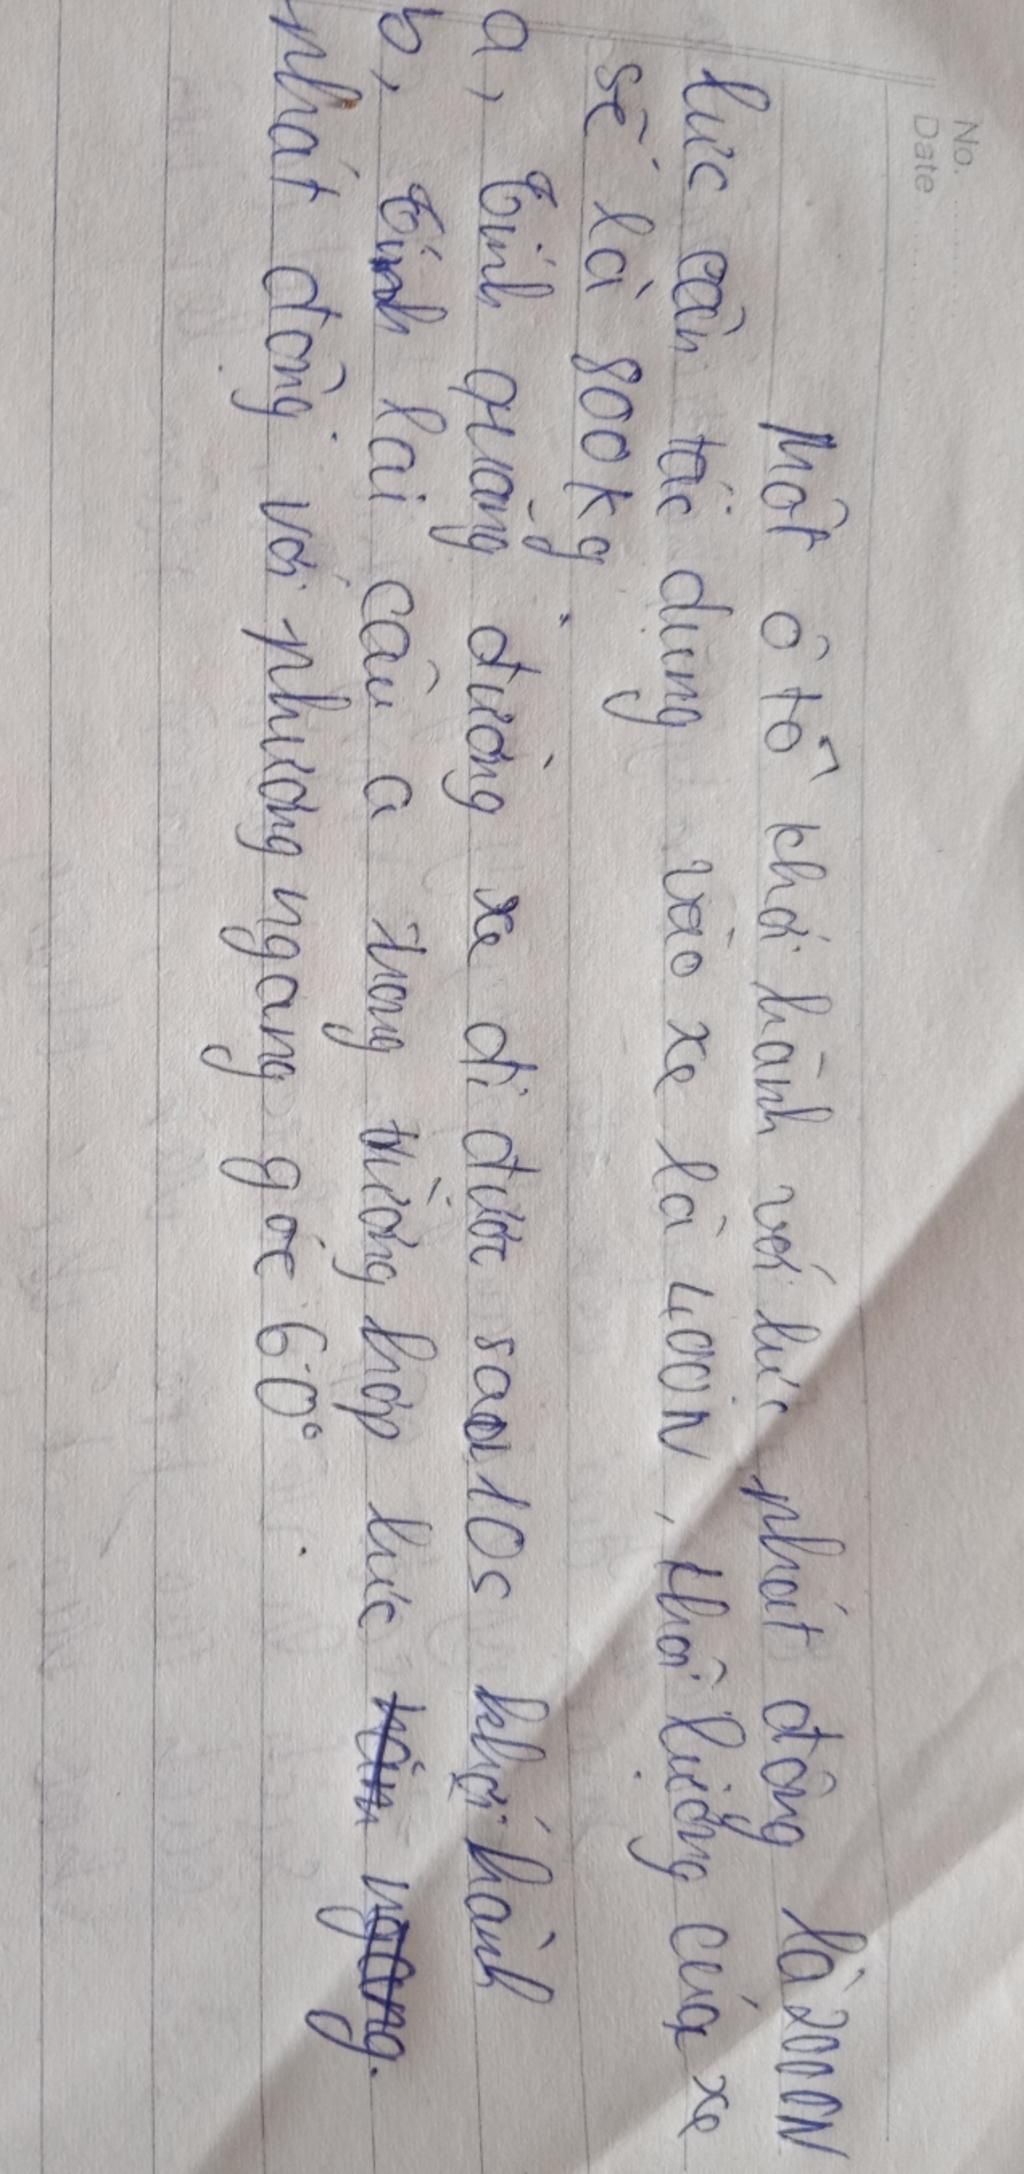 No.
Date
Một ô tô khởi hành với lực phát động là 2000N
lực cản tác dụng vào xe là 400N, khối lượng của xe
sẽ là 800kg.
a, tính quãng đường xe đi được sau 10s khởi hành
b, tính lại câu a trong trường hợp lực
phát động với phương ngang góc 60°.